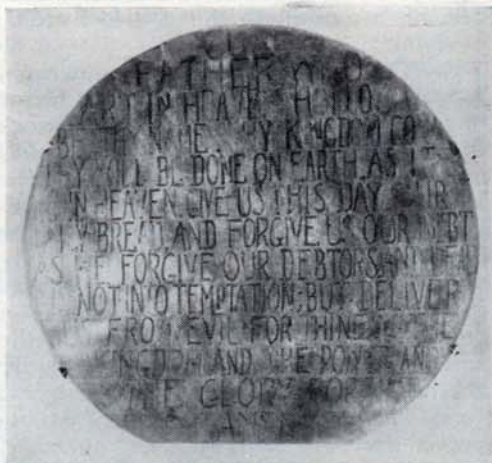 FATHER
ART IN HEAVEN
BE THY NAME. THY KINGDOM CO
WILL BE DONE ON EARTH AS
IN HEAVEN GIVE US THIS DAY OUR
LY BREAD, AND FORGIVE US OUR DEBT
AS WE FORGIVE OUR DEBTORS AND LEAD
NOT INTO TEMPTATION; BUT DELIVER
FROM EVIL FOR THINE
KINGDOM AND THE POWER AND
THE GLORY FOR
AMEN